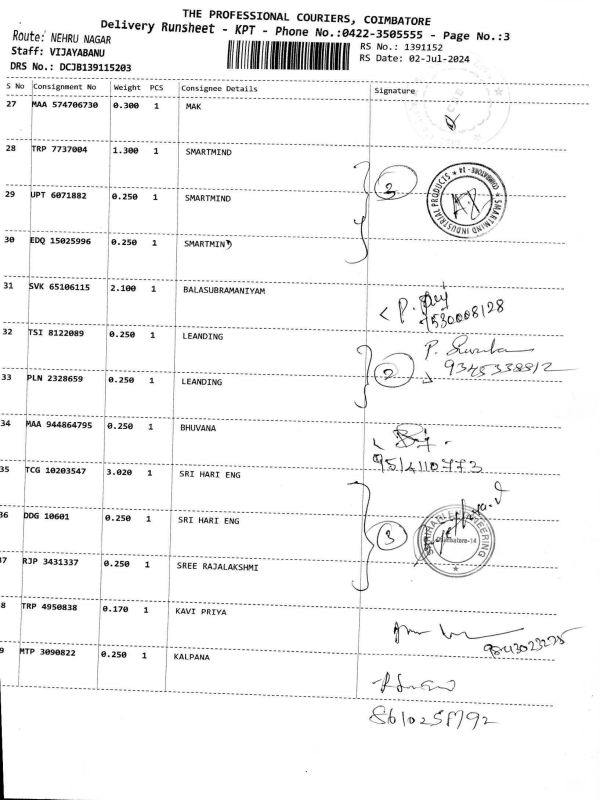 THE PROFESSIONAL COURIERS, COIMBATORE
Delivery Runsheet - KPT - Phone No.:0422-3505555 - Page No.:3
Route: NEHRU NAGAR
Staff: VIJAYABANU
RS No.: 1391152
DRS No.: DCJB139115203
RS Date: 02-Jul-2024
S No Consignment No Weight PCS Consignee Details Signature
27 MAA 574706730 0.300 1 MAK
28 TRP 7737004 1.300 1 SMARTMIND
29 UPT 6071882 0.250 1 SMARTMIND
3
SMARTMIND INDUSTRIAL PRODUCTS * COIMBATORE - 14 *
30 EDQ 15025996 0.250 1 SMARTMIND
31 SVK 65106115 2.100 1 BALASUBRAMANIYAM
7530008128
32 TSI 8122089 0.250 1 LEANDING
2
33 PLN 2328659 0.250 1 LEANDING
34 MAA 944864795 0.250 1 BHUVANA
9514110773
35 TCG 10203547 3.020 1 SRI HARI ENG
36 DDG 10601 0.250 1 SRI HARI ENG
3
37 RJP 3431337 0.250 1 SREE RAJALAKSHMI
8 TRP 4950838 0.170 1 KAVI PRIYA
9 MTP 3090822 0.250 1 KALPANA